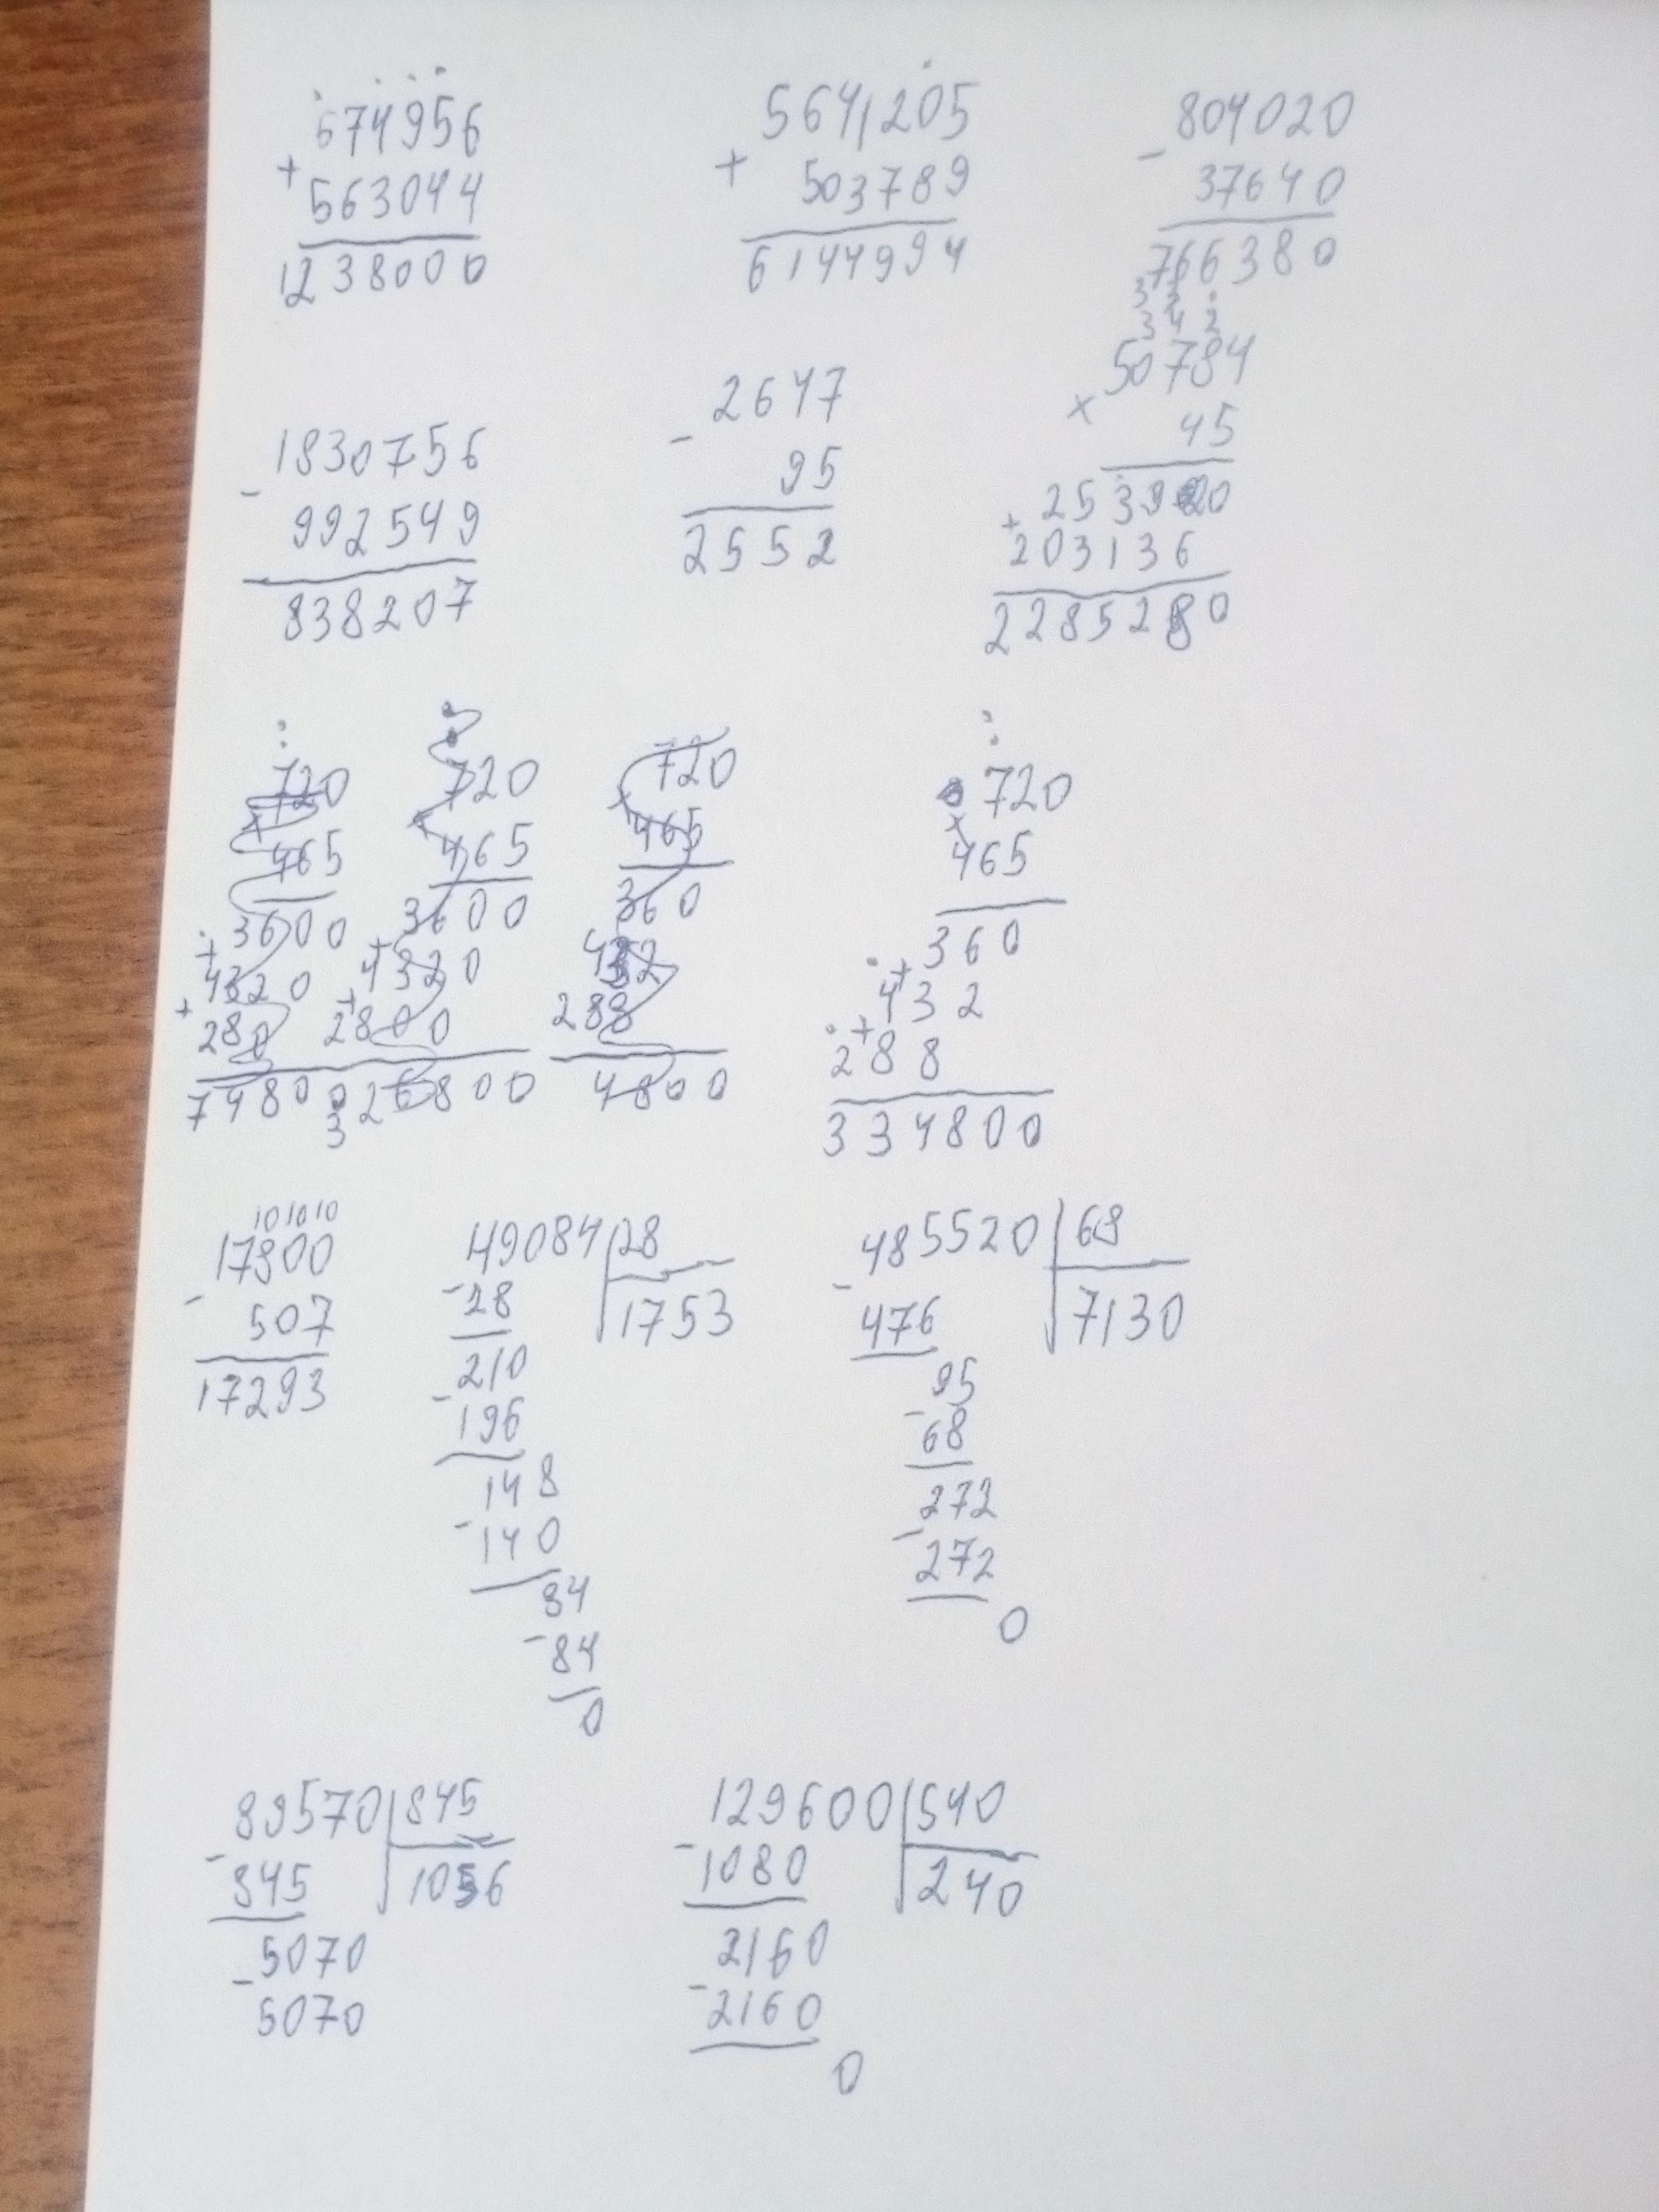 674956
+
563044
1238000
5641205
+
503789
6144994
804020
-
37640
766380
1830756
-
992549
838207
2647
-
95
2552
3 4 2
50784
×
45
253920
+
203136
2285280
720
×
465
3600
+
4320
+
280
74800
720
×
465
3600
+
4320
+
2800
326800
720
×
465
360
432
288
4800
720
×
465
360
+
432
+
288
334800
10 10 10
17800
-
507
17293
49084 28
-
28 1753
210
-
196
148
-
140
84
-
84
0
485520 68
-
476 7130
95
-
68
272
-
272
0
89570 845
-
845 106
5070
-
5070
129600 540
-
1080 240
2160
-
2160
0